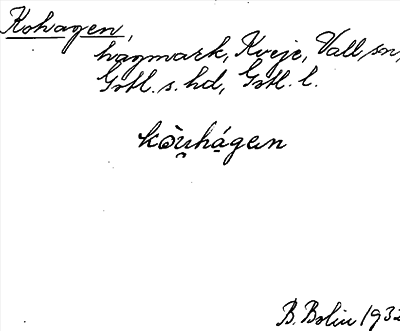 Kohagen,
hagmark, Kveje, Vall, sn,
Gstl. s. hd, Gstl. l.
kòu̯hága̱n
B. Bolin 1932